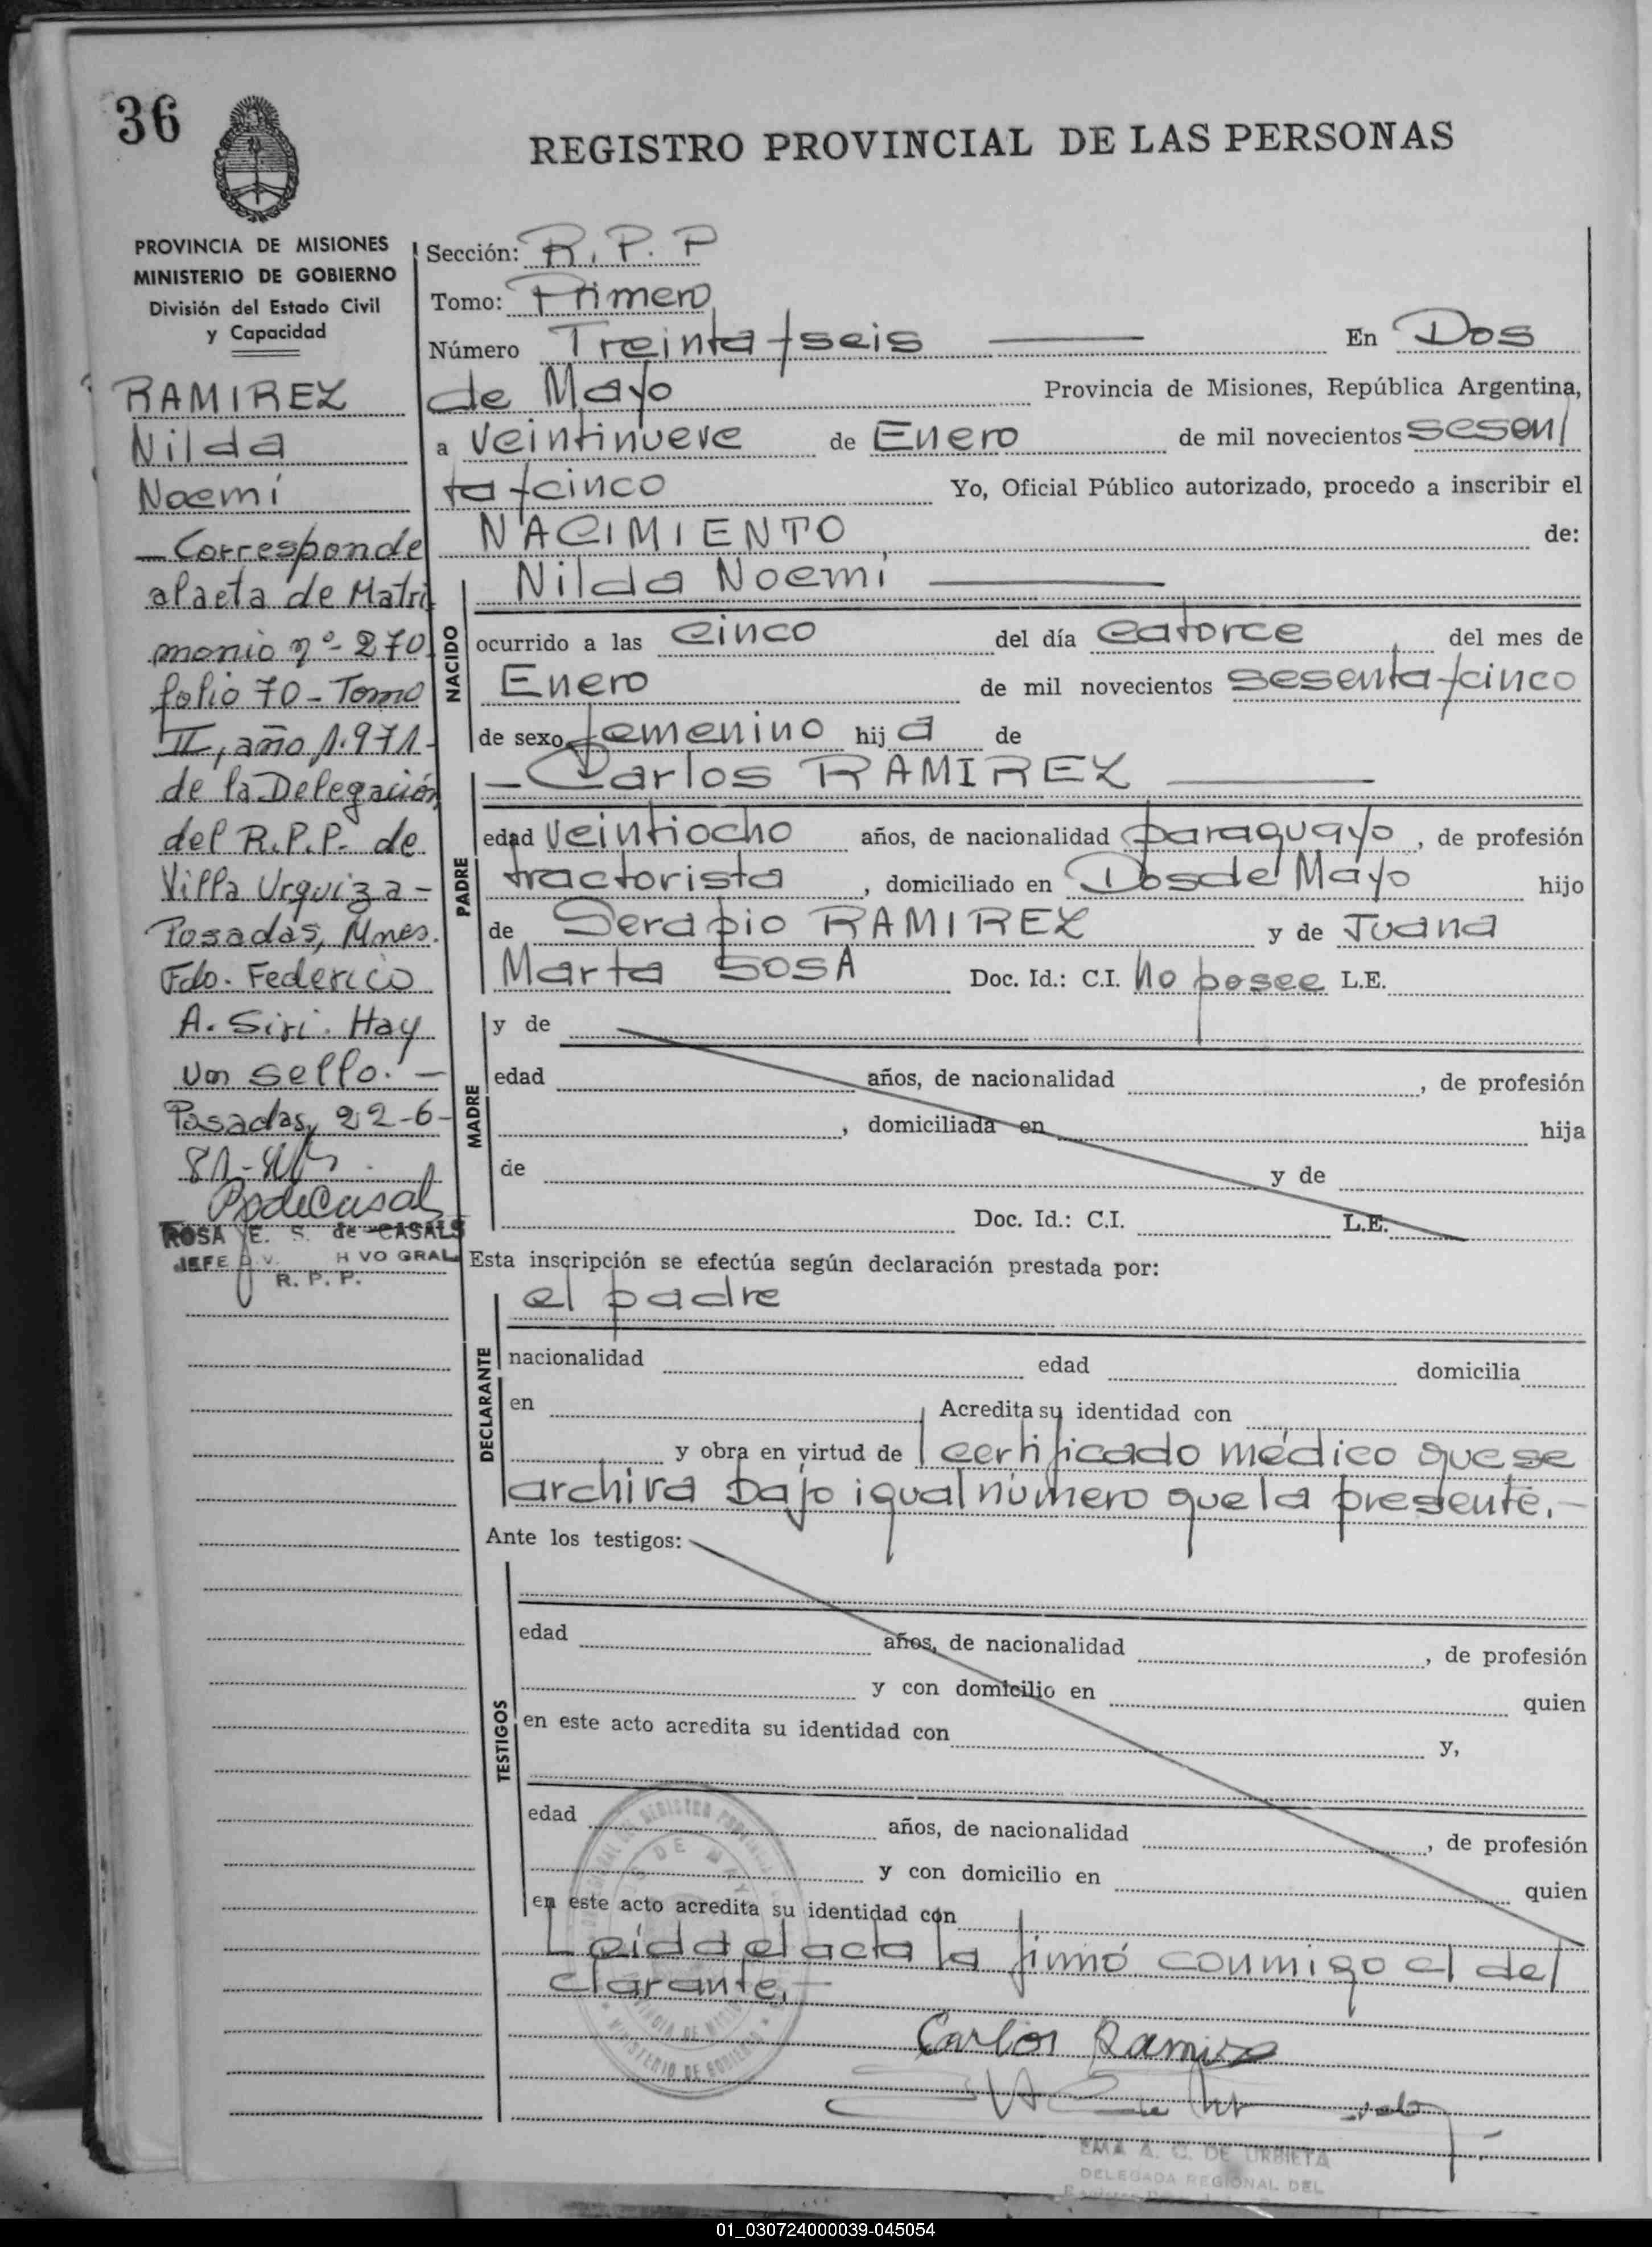 36
REGISTRO PROVINCIAL DE LAS PERSONAS
PROVINCIA DE MISIONES
MINISTERIO DE GOBIERNO
División del Estado Civil
y Capacidad
RAMIREZ
Nilda
Noemí
- Corresponde
al acta de Matri
monio nº 270
folio 70 - Tomo
II, año 1.971-
de la Delegación
del R.P.P. de
Villa Urquiza -
Posadas, Mnes.
Fdo. Federico
A. Siri. Hay
un sello. -
Posadas, 22-6-
81-
ROSA E. S. de CASALS
JEFE
R. P. P.
Sección: R. P. P
Tomo: Primero
Número Treinta y seis En Dos
de Mayo Provincia de Misiones, República Argentina,
a veintinueve de Enero de mil novecientos sesen/
ta y cinco Yo, Oficial Público autorizado, procedo a inscribir el
NACIMIENTO de:
Nilda Noemí
NACIDO
ocurrido a las cinco del día catorce del mes de
Enero de mil novecientos sesenta y cinco
de sexo femenino hij a de
- Carlos RAMIREZ
PADRE
edad veintiocho años, de nacionalidad paraguayo, de profesión
tractorista, domiciliado en Dos de Mayo hijo
de Serapio RAMIREZ y de Juana
Marta SOSA Doc. Id.: C.I. no posee L.E.
MADRE
y de
edad años, de nacionalidad , de profesión
, domiciliada en hija
de y de
Doc. Id.: C.I. L.E.
Esta inscripción se efectúa según declaración prestada por:
el padre
DECLARANTE
nacionalidad edad domicilia
en Acredita su identidad con
y obra en virtud de certificado médico que se
archiva bajo igual número que la presente.-
Ante los testigos:
TESTIGOS
edad años, de nacionalidad , de profesión
y con domicilio en quien
en este acto acredita su identidad con y,
edad años, de nacionalidad , de profesión
y con domicilio en quien
en este acto acredita su identidad con
Leida el acta la firmó conmigo el de/
clarante.-
Carlos Ramirez
EMA A. C. DE URBIETA
DELEGADA REGIONAL DEL
01_030724000039-045054